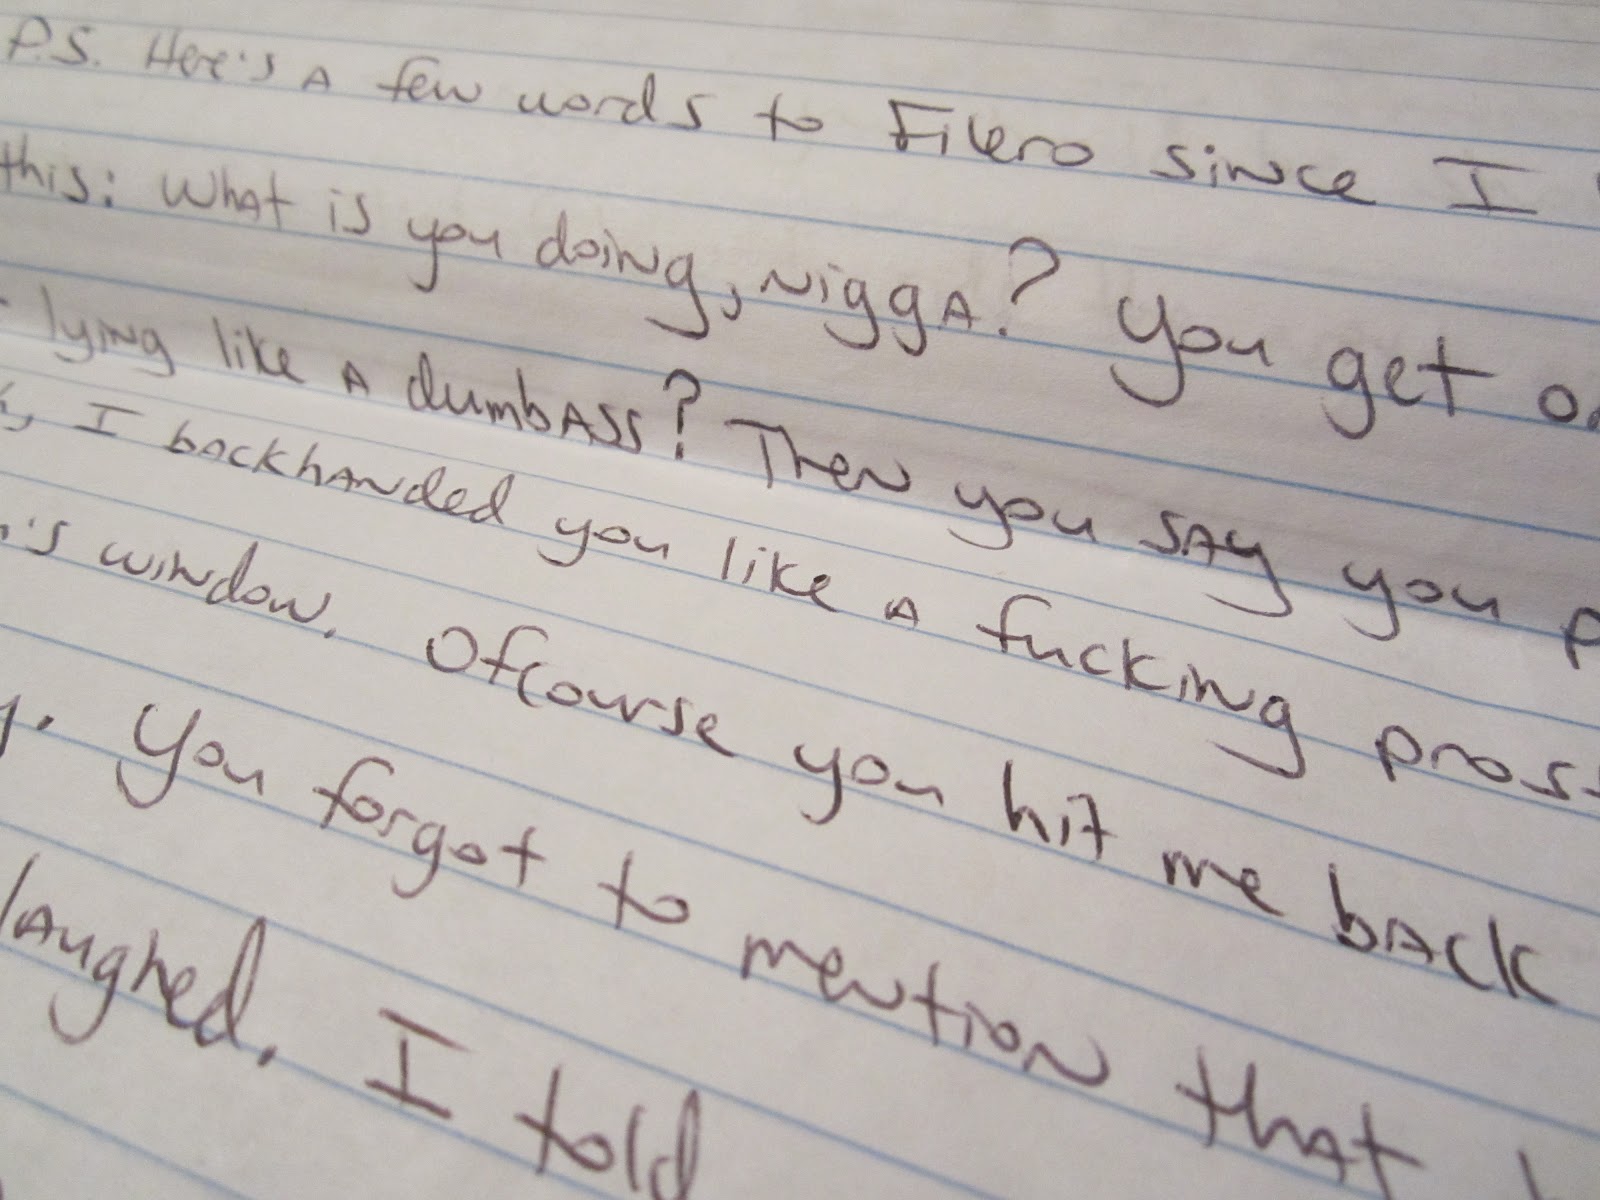 P.S. Here's A few words to Filero since I
this: What is you doing, NiggA? You get
lying like A dumbASS? Then you SAy you
I bACKhANded you like A fucking
window. Ofcourse you hit me bACK
You forgot to mention that
lAughed. I told